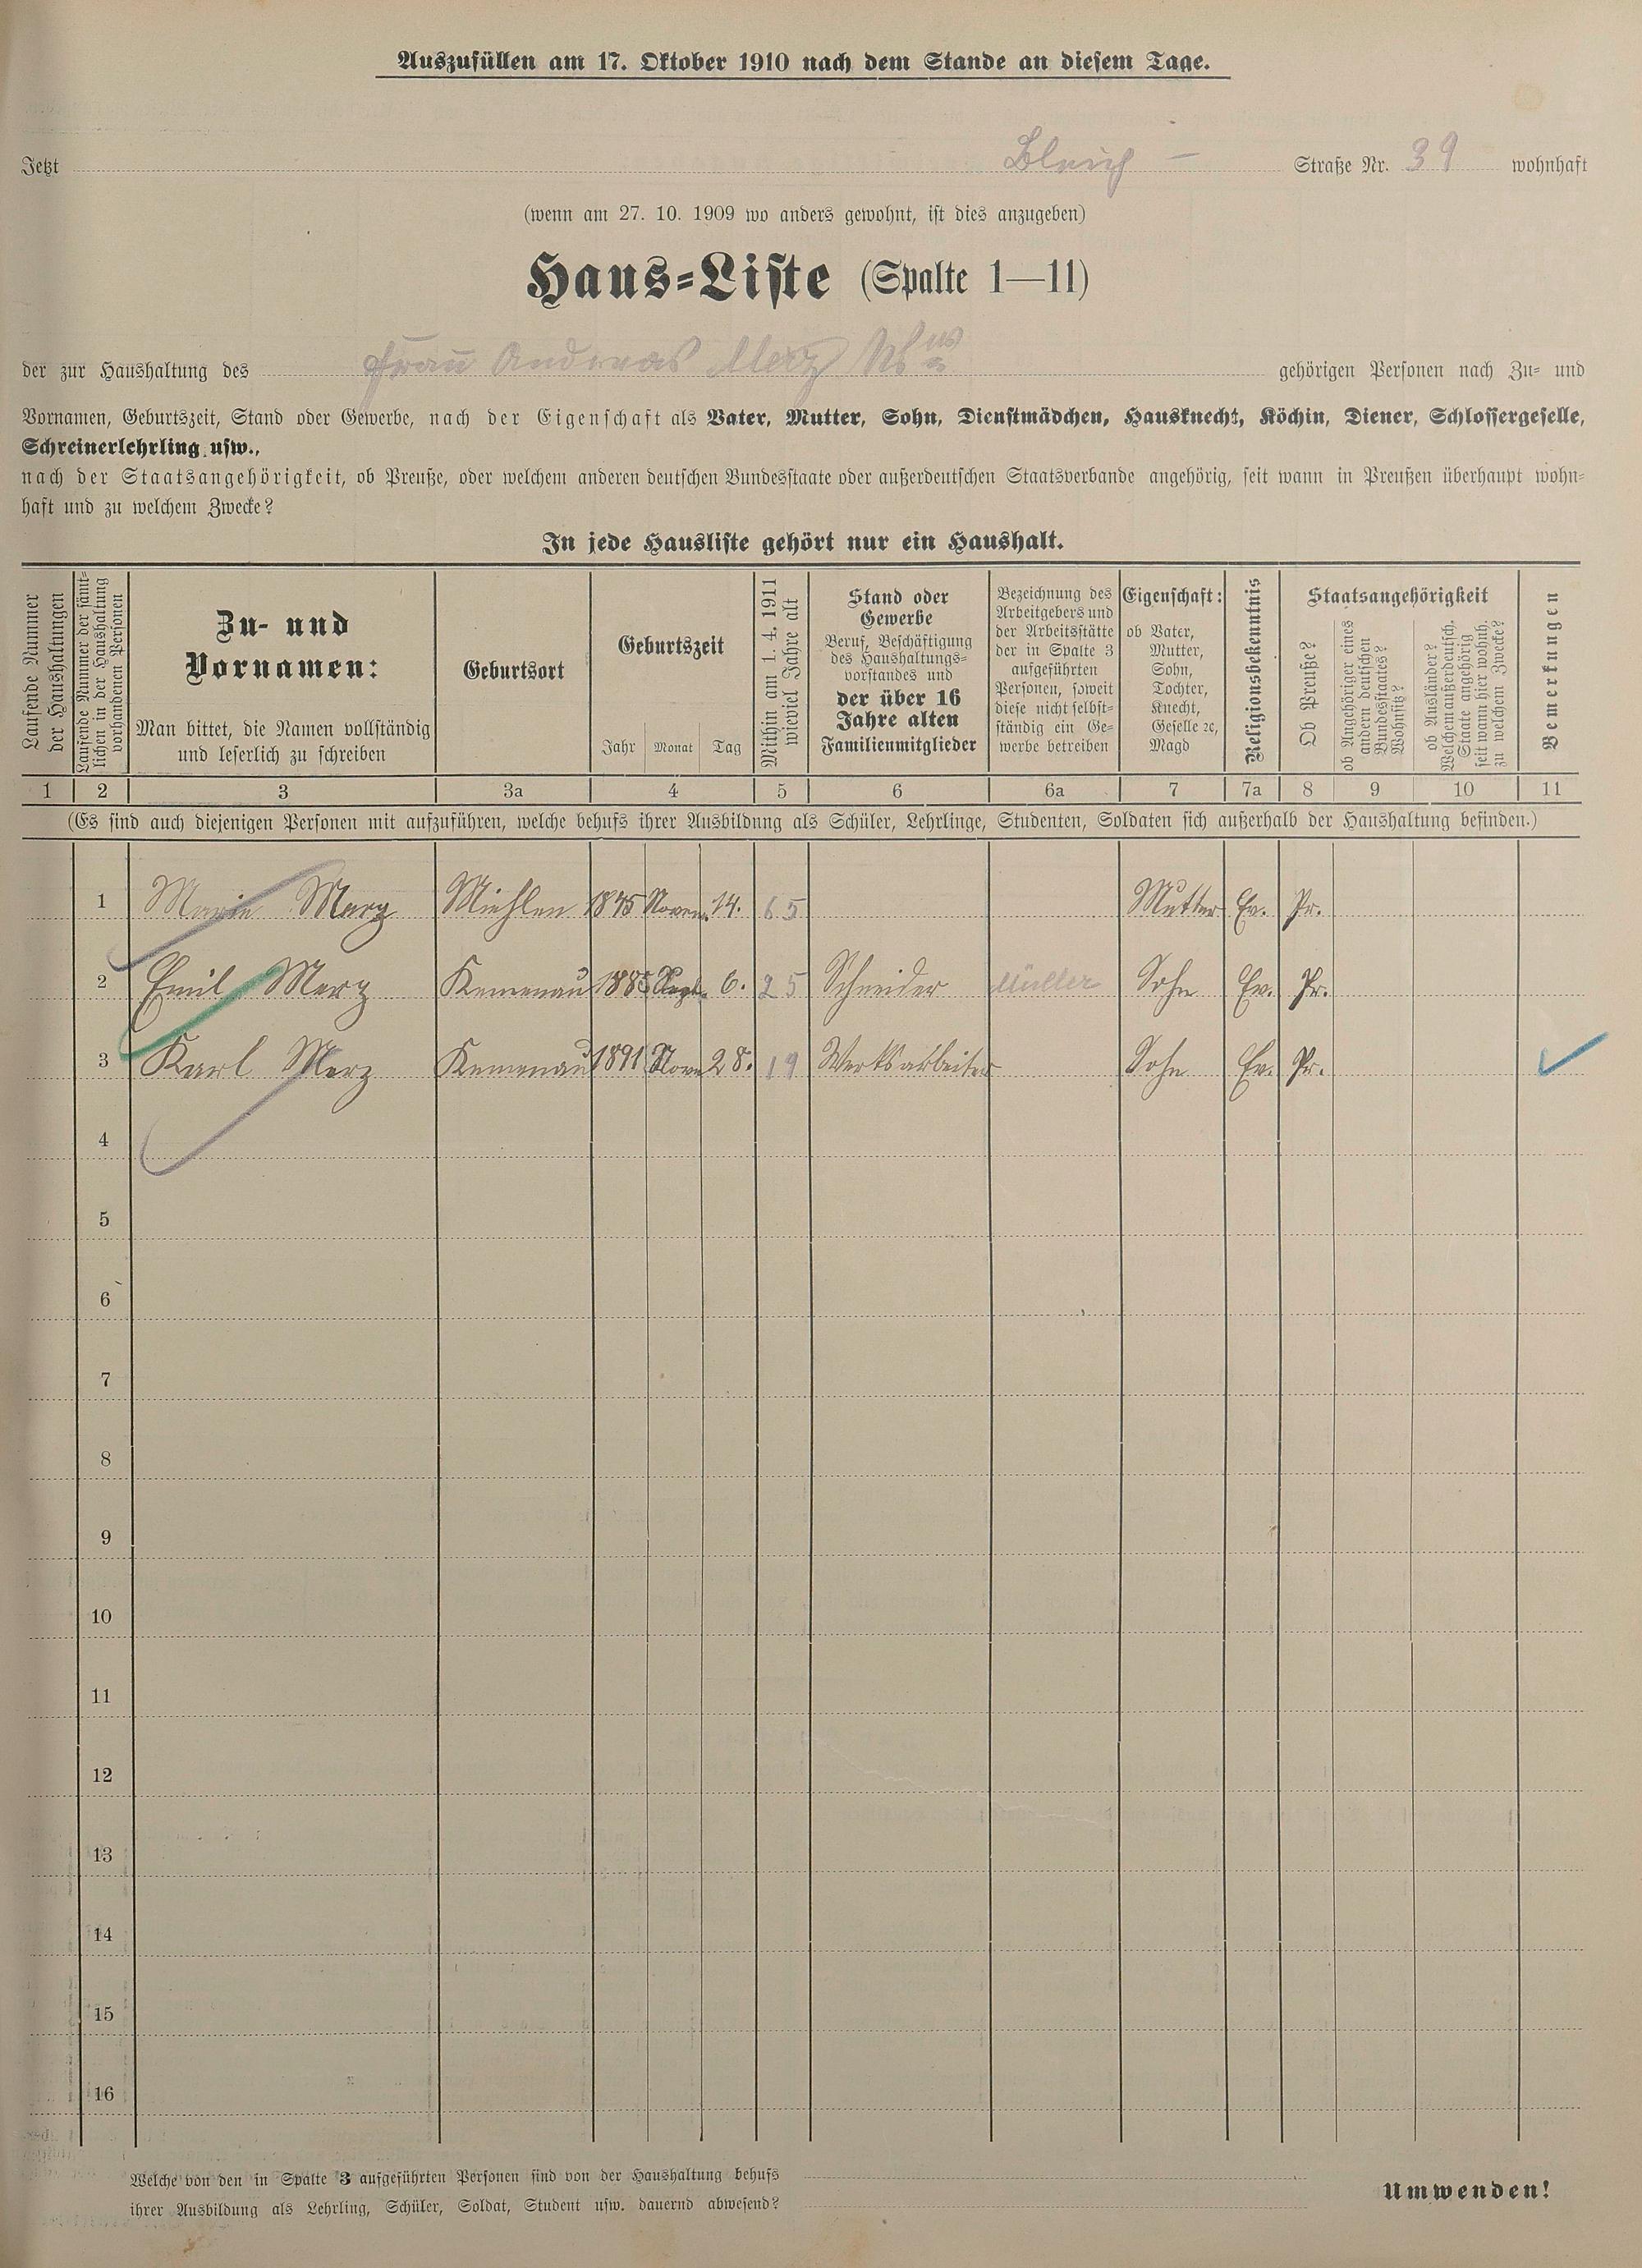 Auszufüllen am 17. Oktober 1910 nach dem Stande an diesem Tage.
Jetzt Bleich – Straße Nr. 39 wohnhaft
(wenn am 27. 10. 1909 wo anders gewohnt, ist dies anzugeben)
Haus-Liste (Spalte 1—11)
der zur Haushaltung des Frau Andreas Merz Wwe gehörigen Personen nach Zu- und
Vornamen, Geburtszeit, Stand oder Gewerbe, nach der Eigenschaft als Vater, Mutter, Sohn, Dienstmädchen, Hausknecht, Köchin, Diener, Schlossergeselle,
Schreinerlehrling usw.,
nach der Staatsangehörigkeit, ob Preuße, oder welchem anderen deutschen Bundesstaate oder außerdeutschen Staatsverbande angehörig, seit wann in Preußen überhaupt wohn-
haft und zu welchem Zwecke?
In jede Hausliste gehört nur ein Haushalt.
Laufende Nummer
der Haushaltungen
Laufende Nummer der sämt-
lichen in der Haushaltung
vorhandenen Personen
Zu- und
Vornamen:
Man bittet, die Namen vollständig
und leserlich zu schreiben
Geburtsort
Geburtszeit
Jahr Monat Tag
Mithin am 1. 4. 1911
wieviel Jahre alt
Stand oder
Gewerbe
Beruf, Beschäftigung
des Haushaltungs-
vorstandes und
der über 16
Jahre alten
Familienmitglieder
Bezeichnung des
Arbeitgebers und
der Arbeitsstätte
der in Spalte 3
aufgeführten
Personen, soweit
diese nicht selbst-
ständig ein Ge-
werbe betreiben
Eigenschaft:
ob Vater,
Mutter,
Sohn,
Tochter,
Knecht,
Geselle ec,
Magd
Religionsbekenntnis
Staatsangehörigkeit
Ob Preuße?
ob Angehöriger eines
andern deutschen
Bundesstaates?
Wohnsitz?
ob Ausländer?
Welchem außerdeutsch.
Staate angehörig
seit wann hier wohnh.
zu welchem Zwecke?
Bemerkungen
1 2 3 3a 4 5 6 6a 7 7a 8 9 10 11
(Es sind auch diejenigen Personen mit aufzuführen, welche behufs ihrer Ausbildung als Schüler, Lehrlinge, Studenten, Soldaten sich außerhalb der Haushaltung befinden.)
1 Marie Merz Miehlen 1845 Novem. 14. 65 Mutter Ev. Pr.
2 Emil Merz Kemenau 1885 Sept. 6. 25 Schneider Müller Sohn Ev. Pr.
3 Karl Merz Kemenau 1891 Nove 28. 19 Werksarbeiter Sohn Ev. Pr.
4
5
6
7
8
9
10
11
12
13
14
15
16
Welche von den in Spalte 3 aufgeführten Personen sind von der Haushaltung behufs
ihrer Ausbildung als Lehrling, Schüler, Soldat, Student usw. dauernd abwesend?
Umwenden!